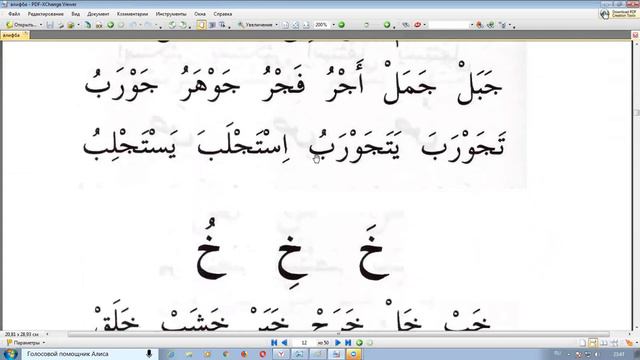 алифба - PDF-XChange Viewer
Файл Редактирование Вид Документ Комментарии Инструменты Окно Справка
Download PDF Creation Tools
Увеличение 200%
алифба
جَبَلْ جَمَلْ أَجْرُ فَجْرُ جَوْهَرُ جَوْرَبُ
تَجَوْرَبَ يَتَجَوْرَبُ اِسْتَجْلَبَ يَسْتَجْلِبُ
خَ خِ خُ
خَرَجْ خَبَرْ خَشَبْ خَلَقْ
20,81 x 28,93 см
Параметры 12 из 50
Голосовой помощник Алиса RU